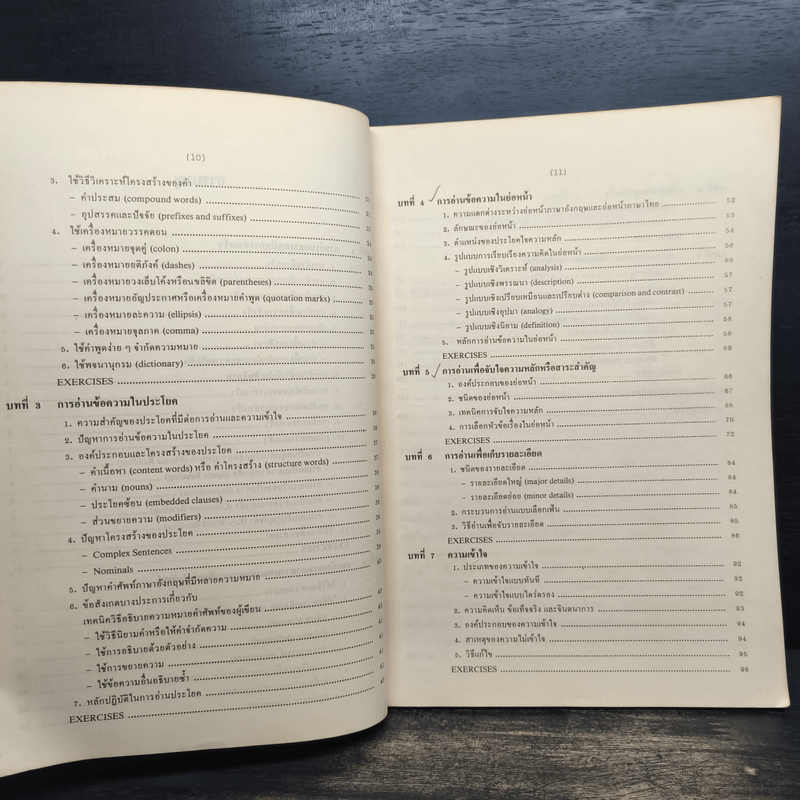 (10)
3. ใช้วิธีวิเคราะห์โครงสร้างของคำ
– คำประสม (compound words) 21
– อุปสรรคและปัจจัย (prefixes and suffixes) 21
4. ใช้เครื่องหมายวรรคตอน 21
– เครื่องหมายจุดคู่ (colon) 21
– เครื่องหมายยติภังค์ (dashes) 21
– เครื่องหมายวงเล็บโค้งหรือนขลิขิต (parentheses)
– เครื่องหมายอัญประกาศหรือเครื่องหมายคำพูด (quotation marks)
– เครื่องหมายละความ (ellipsis)
– เครื่องหมายจุลภาค (comma)
5. ใช้คำพูดง่าย ๆ จำกัดความหมาย
6. ใช้พจนานุกรม (dictionary)
EXERCISES
บทที่ 3 การอ่านข้อความในประโยค
1. ความสำคัญของประโยคที่มีต่อการอ่านและความเข้าใจ
2. ปัญหาการอ่านข้อความในประโยค
3. องค์ประกอบและโครงสร้างของประโยค
– คำเนื้อหา (content words) หรือ คำโครงสร้าง (structure words)
– คำนาม (nouns)
– ประโยคซ้อน (embedded clauses)
– ส่วนขยายความ (modifiers)
4. ปัญหาโครงสร้างของประโยค
– Complex Sentences
– Nominals
5. ปัญหาคำศัพท์ภาษาอังกฤษที่มีหลายความหมาย
6. ข้อสังเกตบางประการเกี่ยวกับ
เทคนิควิธีอธิบายความหมายคำศัพท์ของผู้เขียน
– ใช้วิธีนิยามคำหรือให้คำจำกัดความ
– ใช้การอธิบายด้วยตัวอย่าง
– ใช้การขยายความ
– ใช้ข้อความอื่นอธิบายซ้ำ
7. หลักปฏิบัติในการอ่านประโยค
EXERCISES
(11)
บทที่ 4 การอ่านข้อความในย่อหน้า
1. ความแตกต่างระหว่างย่อหน้าภาษาอังกฤษและย่อหน้าภาษาไทย 52
2. ลักษณะของย่อหน้า 53
3. ตำแหน่งของประโยคใจความหลัก 54
4. รูปแบบการเรียบเรียงความคิดในย่อหน้า 56
– รูปแบบเชิงวิเคราะห์ (analysis) 56
– รูปแบบเชิงพรรณนา (description) 57
– รูปแบบเชิงเปรียบเหมือนและเปรียบต่าง (comparison and contrast) 57
– รูปแบบเชิงอุปมา (analogy) 57
– รูปแบบเชิงนิยาม (definition) 58
5. หลักการอ่านข้อความในย่อหน้า 58
EXERCISES 59
บทที่ 5 การอ่านเพื่อจับใจความหลักหรือสาระสำคัญ
1. องค์ประกอบของย่อหน้า 66
2. ชนิดของย่อหน้า 67
3. เทคนิคการจับใจความหลัก 68
4. การเลือกหัวข้อเรื่องในย่อหน้า 70
EXERCISES 72
บทที่ 6 การอ่านเพื่อเก็บรายละเอียด
1. ชนิดของรายละเอียด 84
– รายละเอียดใหญ่ (major details) 84
– รายละเอียดย่อย (minor details) 84
2. กระบวนการอ่านแบบเลือกเฟ้น 85
3. วิธีอ่านเพื่อจับรายละเอียด 85
EXERCISES 86
บทที่ 7 ความเข้าใจ
1. ประเภทของความเข้าใจ 92
– ความเข้าใจแบบทันที 92
– ความเข้าใจแบบไตร่ตรอง 92
2. ความคิดเห็น ข้อเท็จจริง และจินตนาการ 93
3. องค์ประกอบของความเข้าใจ 94
4. สาเหตุของความไม่เข้าใจ 94
5. วิธีแก้ไข 95
EXERCISES 96